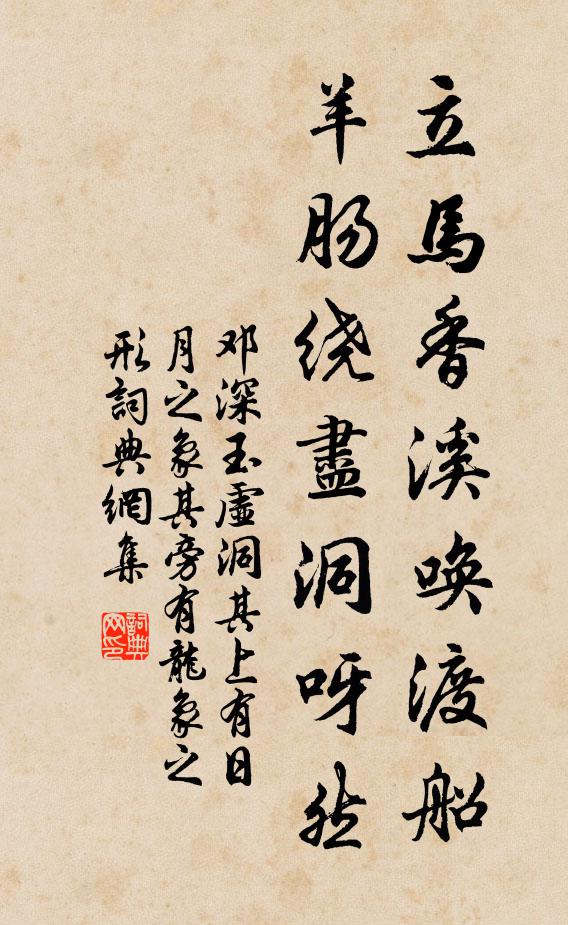 立馬香溪唤渡船
羊肠绕盡洞呀然
邓深玉虚洞其上有日
月之象其旁有龍象之
形詞典網集
詞典
网印